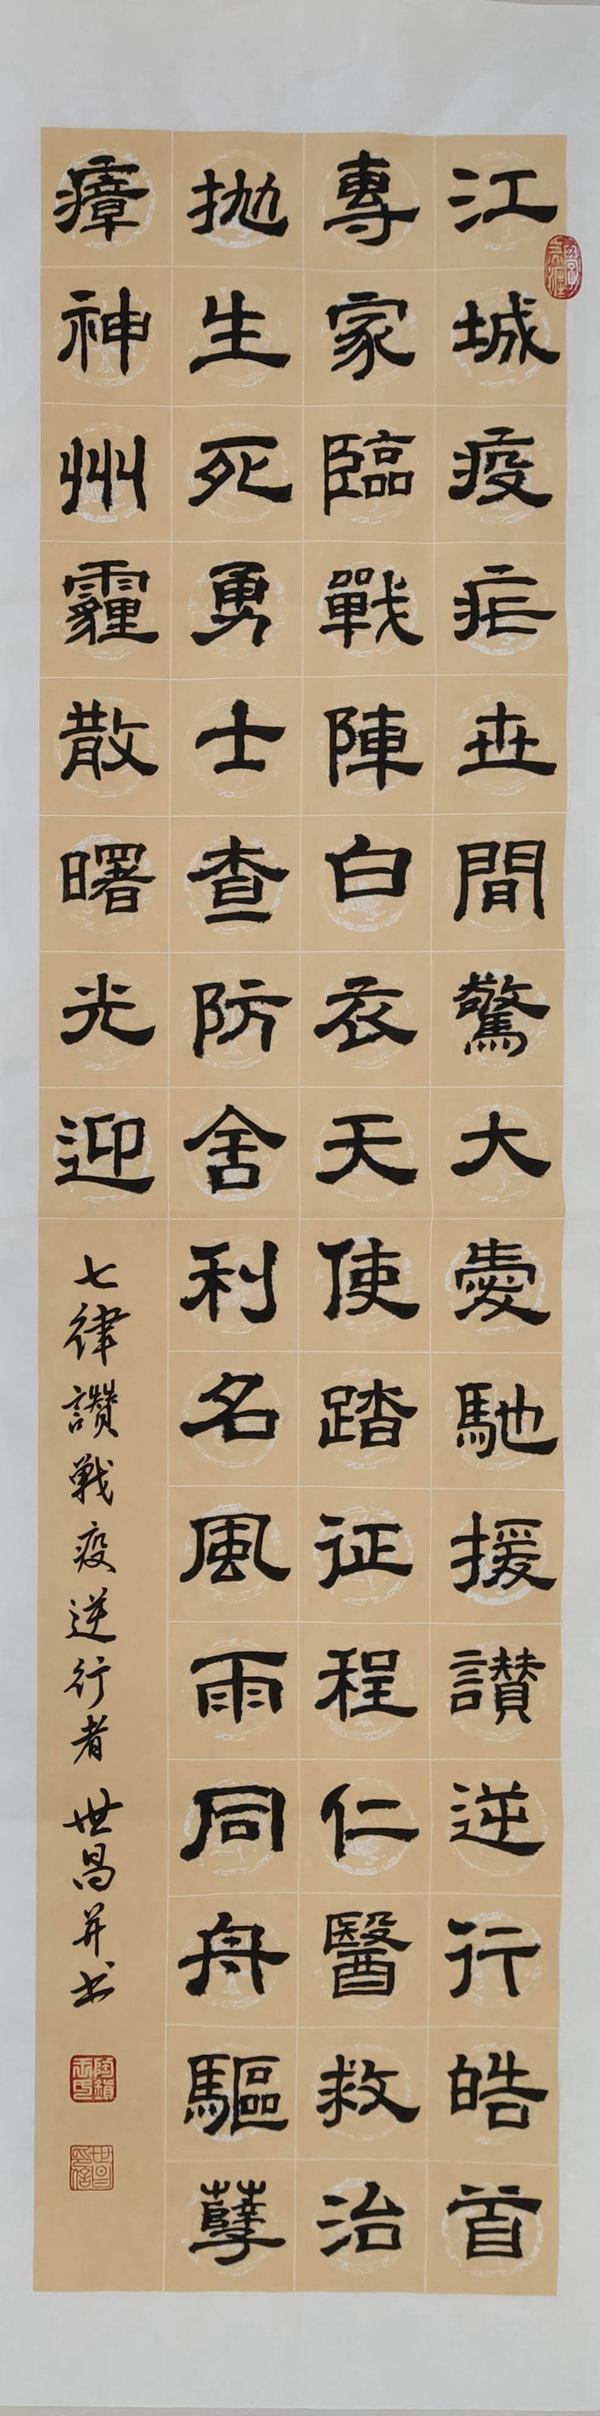 江城疫疟世間驚大愛馳援讃逆行皓首
專家臨戰陣白衣天使踏征程仁醫救治
拋生死勇士查防舍利名風雨同舟驅孽
瘴神州霾散曙光迎
七律讃戰疫逆行者 世昌并书